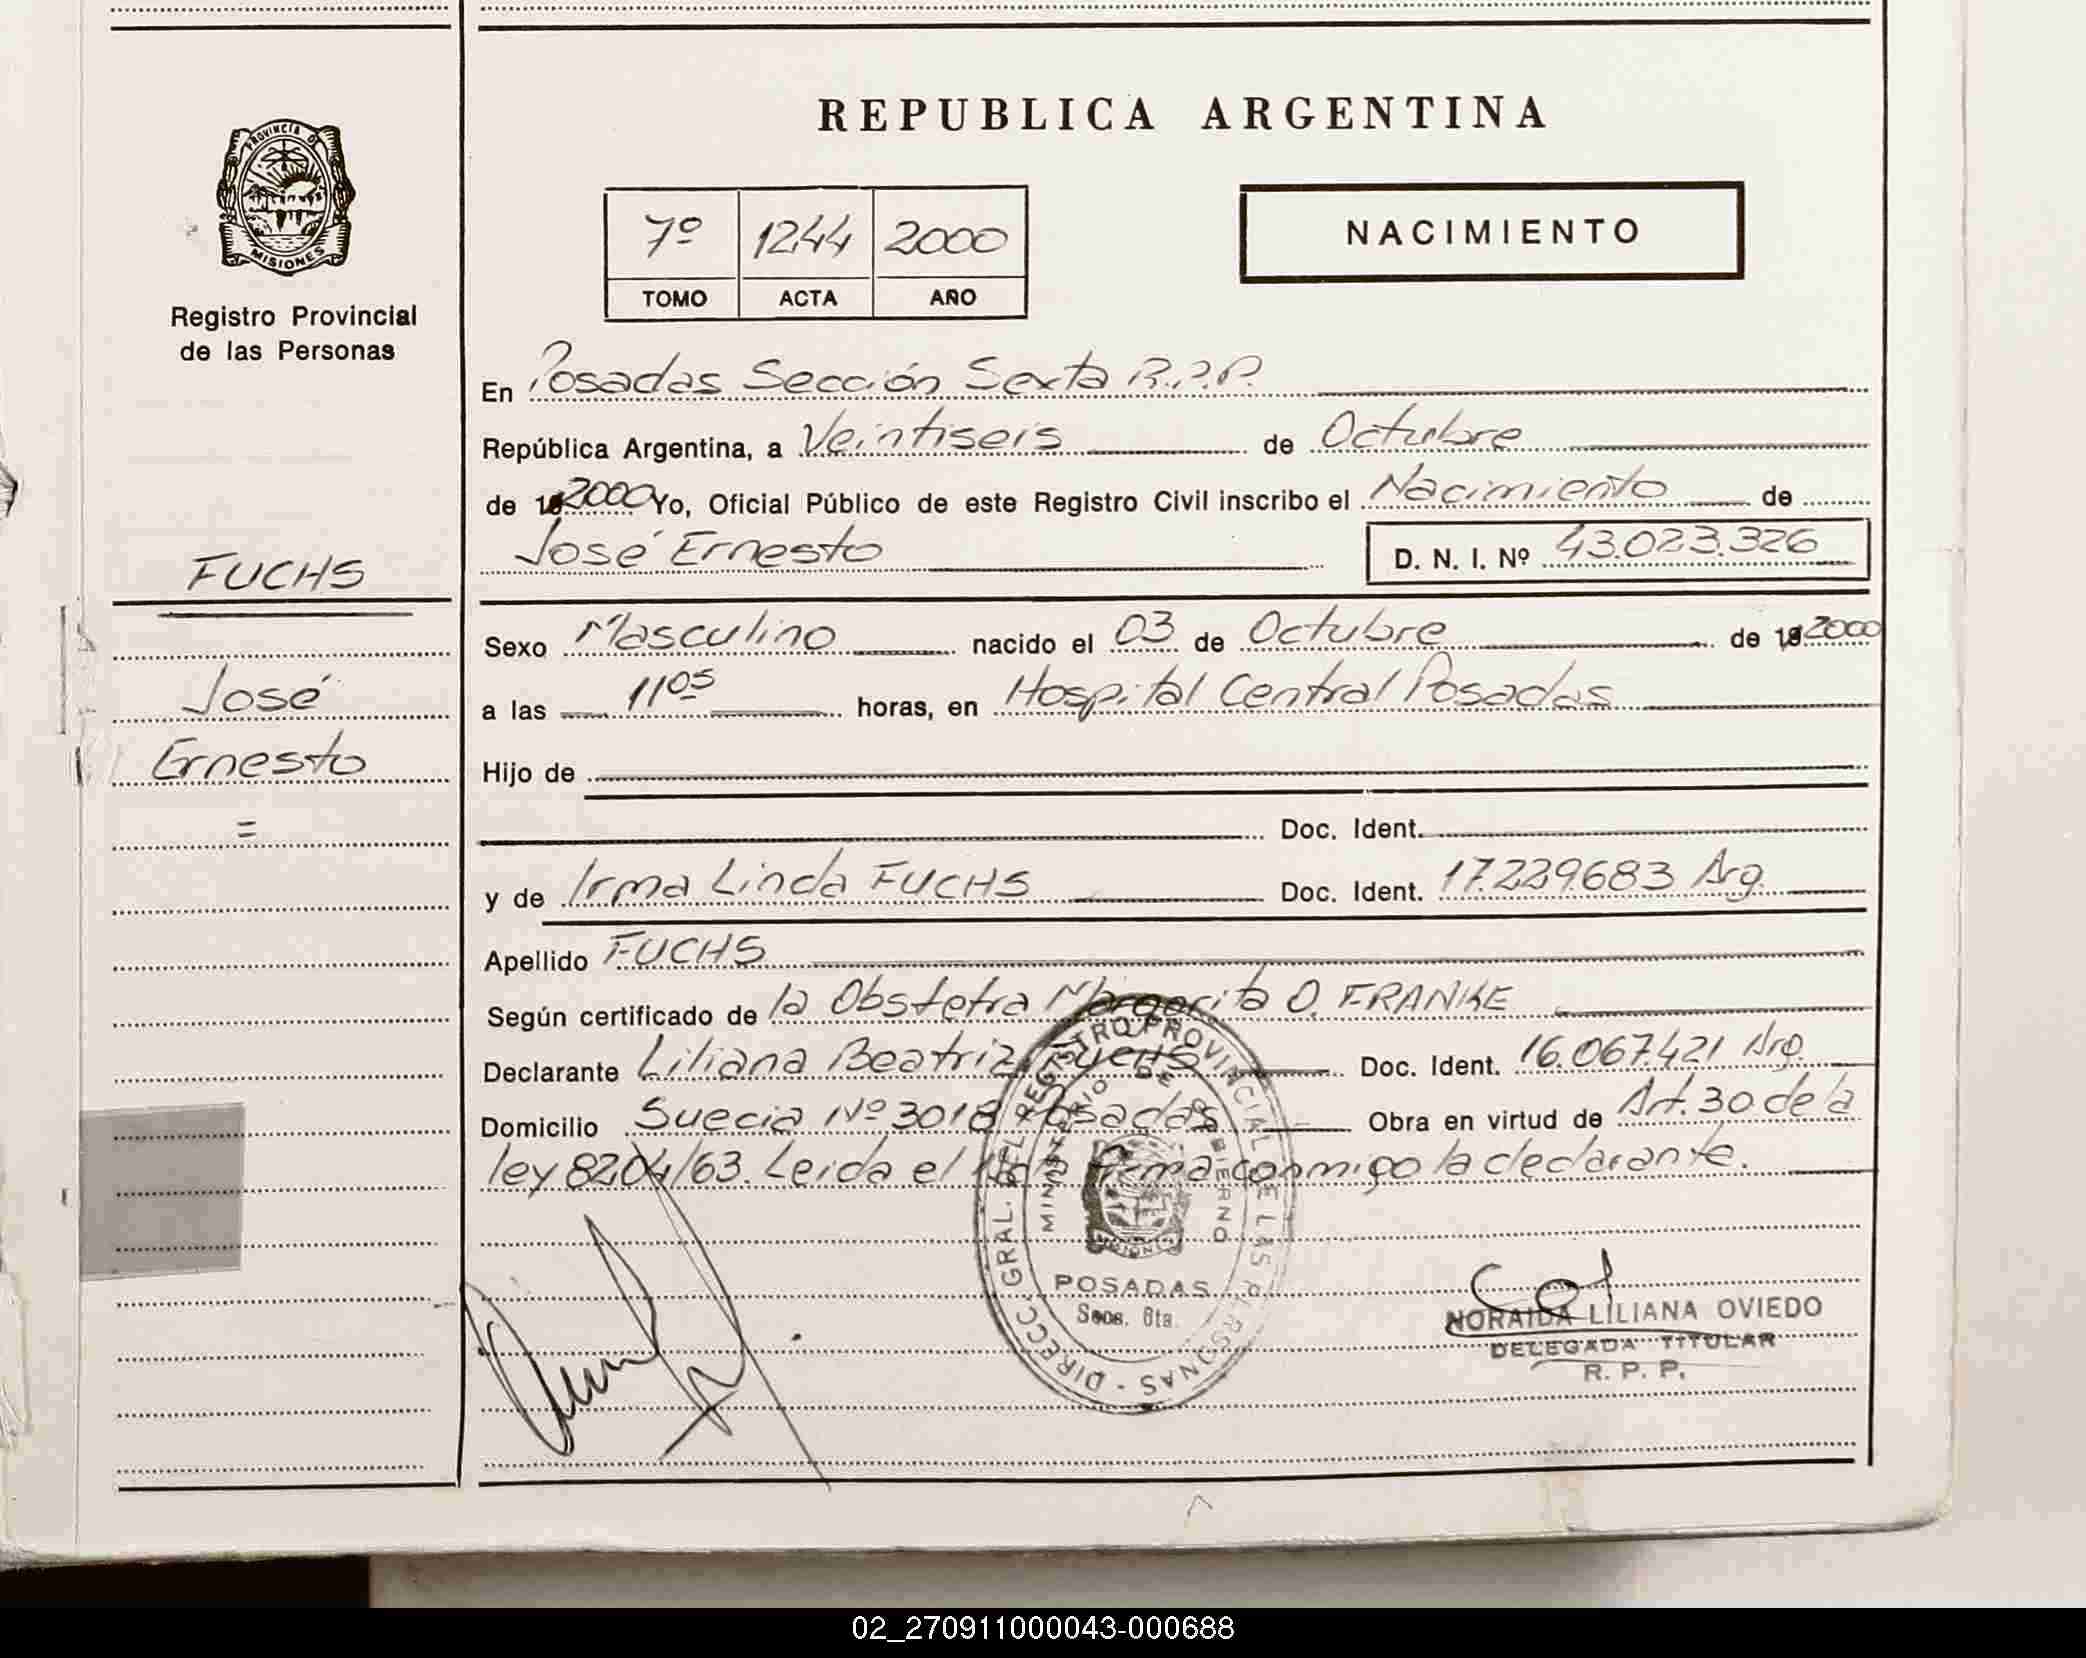 REPUBLICA ARGENTINA
PROVINCIA DE MISIONES
Registro Provincial
de las Personas
7º 1244 2000
TOMO ACTA AÑO
NACIMIENTO
En Posadas Sección Sexta R.P.P.
República Argentina, a Veintiseis de Octubre
de 2000 Yo, Oficial Público de este Registro Civil inscribo el Nacimiento de
José Ernesto D. N. I. Nº 43.023.326
FUCHS
José
Ernesto
=
Sexo Masculino nacido el 03 de Octubre de 2000
a las 11 05 horas, en Hospital Central Posadas
Hijo de
Doc. Ident.
y de Irma Linda FUCHS Doc. Ident. 17.229.683 Arg.
Apellido FUCHS
Según certificado de la Obstetra Margarita O. FRANKE
Declarante Liliana Beatriz FUCHS Doc. Ident. 16.067.421 Arg.
Domicilio Suecia Nº 3018 Posadas Obra en virtud de Art. 30 de la
ley 8204/63. Leida el Acta firma conmigo la declarante.
DIRECC. GRAL. DEL REGISTRO PROVINCIAL DE LAS PERSONAS
MINISTERIO DE GOBIERNO
MISIONES
POSADAS
Secc. 6ta.
NORAIDA LILIANA OVIEDO
DELEGADA TITULAR
R. P. P.
02_270911000043-000688